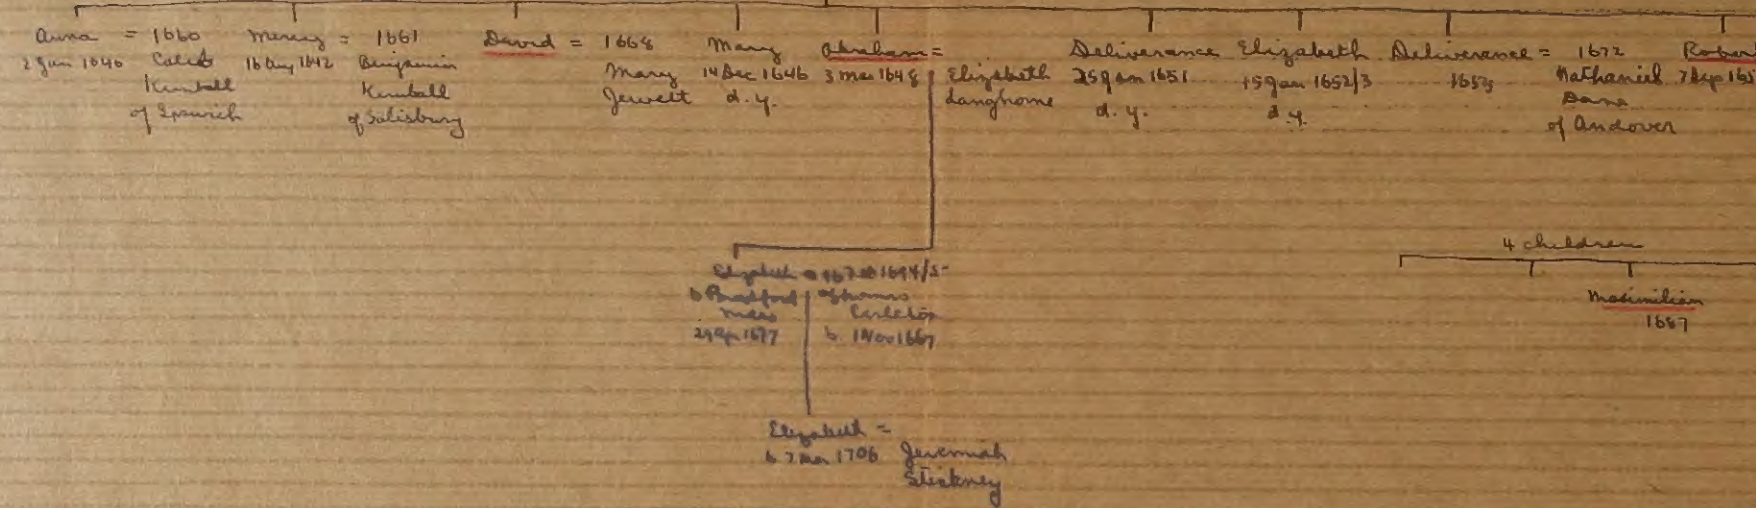 Anna = 1660
2 Jan 1640 Caleb
Kimball
of Ipswich
Mercy = 1661
16 Aug 1642 Benjamin
Kimball
of Salisbury
David = 1668
Mary
Jewett
Mary
14 Dec 1646
d. y.
Abraham =
3 mar 1648 Elizabeth
Langhorne
Deliverance
25 Jan 1651
d. y.
Elizabeth
15 Jan 1652/3
d. y.
Deliverance = 1672
Nathaniel
Dane
of Andover
Robert
7 Sep 165
4 children
Maximilian
1687
Elizabeth = 1694/5
b Bradford Thomas
mass Carleton
b. Nov 1667
Elizabeth =
b 7 mar 1706 Jeremiah
Stickney